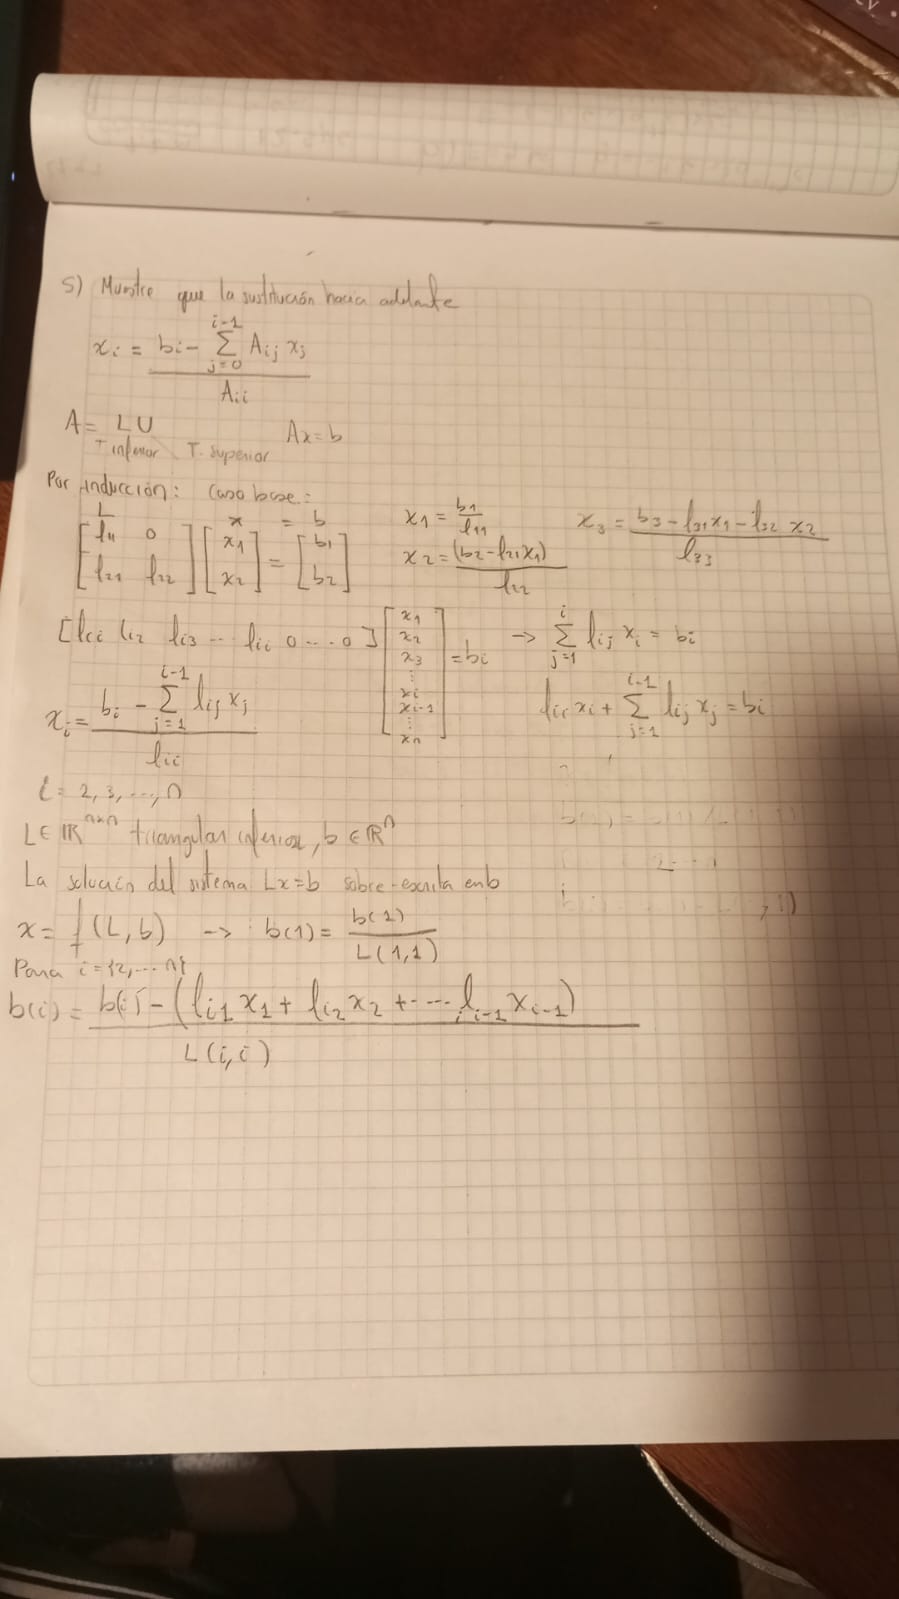 5) Muestre que la sustitución hacia adelante
x_i = (b_i - \sum_{j=0}^{i-1} A_{ij} x_j) / A_{ii}
A = LU    Ax = b
T inferior    T. superior
Por inducción: Caso base:
L    x = b
[l_{11} 0; l_{21} l_{22}] [x_1; x_2] = [b_1; b_2]
x_1 = b_1 / l_{11}
x_2 = (b_2 - l_{21} x_1) / l_{22}
x_3 = (b_3 - l_{31} x_1 - l_{32} x_2) / l_{33}
[l_{ii} l_{i2} l_{i3} ... l_{ii} 0 ... 0] [x_1; x_2; x_3; ⋮; x_i; x_{i-1}; ⋮; x_n] = b_i → \sum_{j=1}^{i} l_{ij} x_i = b_i
x_i = (b_i - \sum_{j=1}^{i-1} l_{ij} x_j) / l_{ii}
l_{ii} x_i + \sum_{j=1}^{i-1} l_{ij} x_j = b_i
i = 2, 3, ..., n
L ∈ ℝ^{n×n} triangular inferior, b ∈ ℝ^n
La solución del sistema Lx = b sobre-escrita en b
x = f(L, b) -> b(1) = b(1) / L(1,1)
Para i = {2, ... n}
b(i) = b(i) - (l_{i1} x_1 + l_{i2} x_2 + ... l_{i-1} x_{i-1}) / L(i,i)